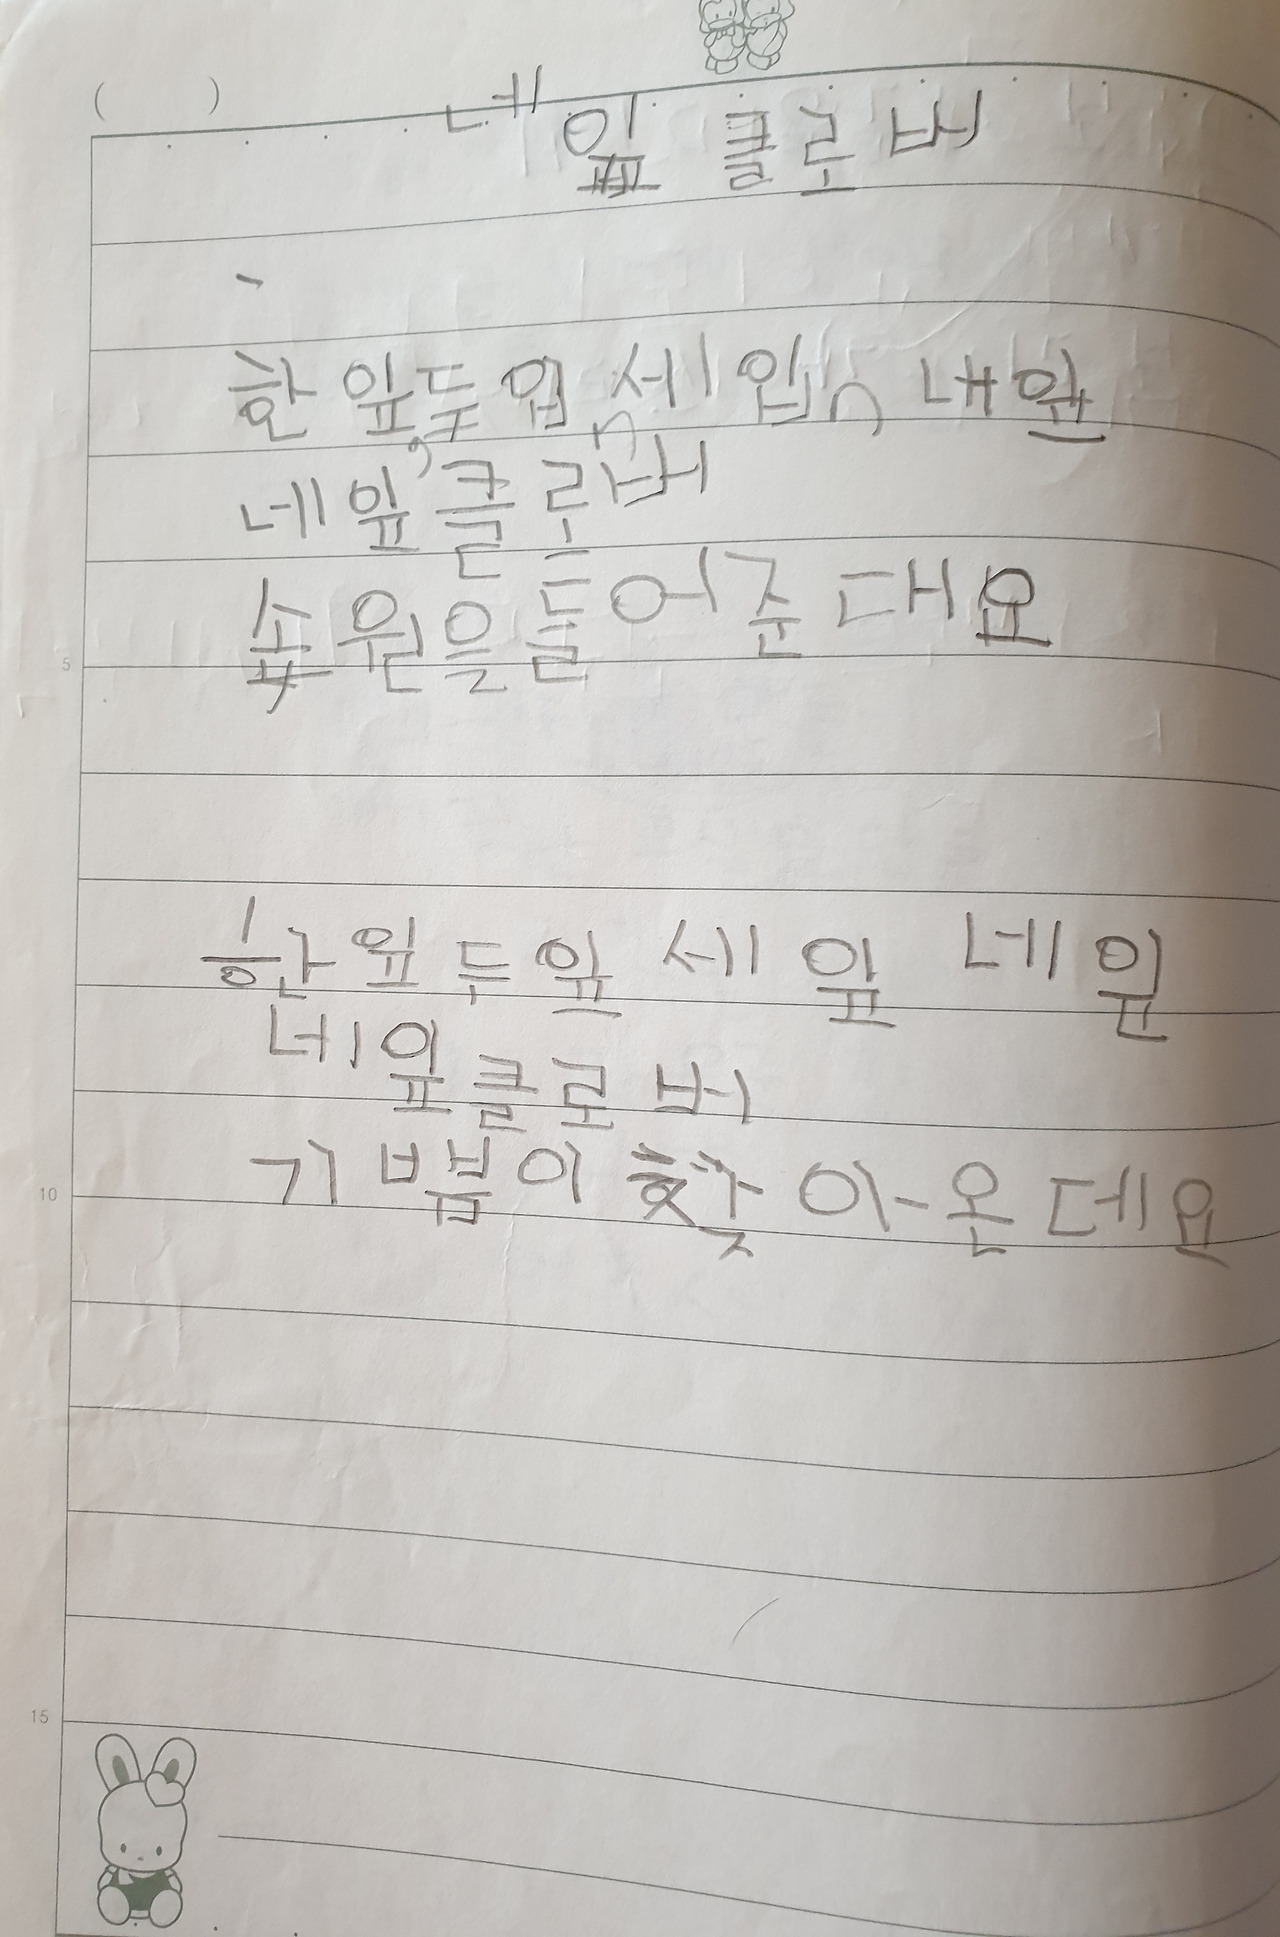 ( )
네잎 클로버
한 잎두 입 세입 내잎
네잎클로버
소원을들어준대요
5
한잎 두잎 세 잎 네잎
네잎클로버
기쁨이 찾아온데요
10
15